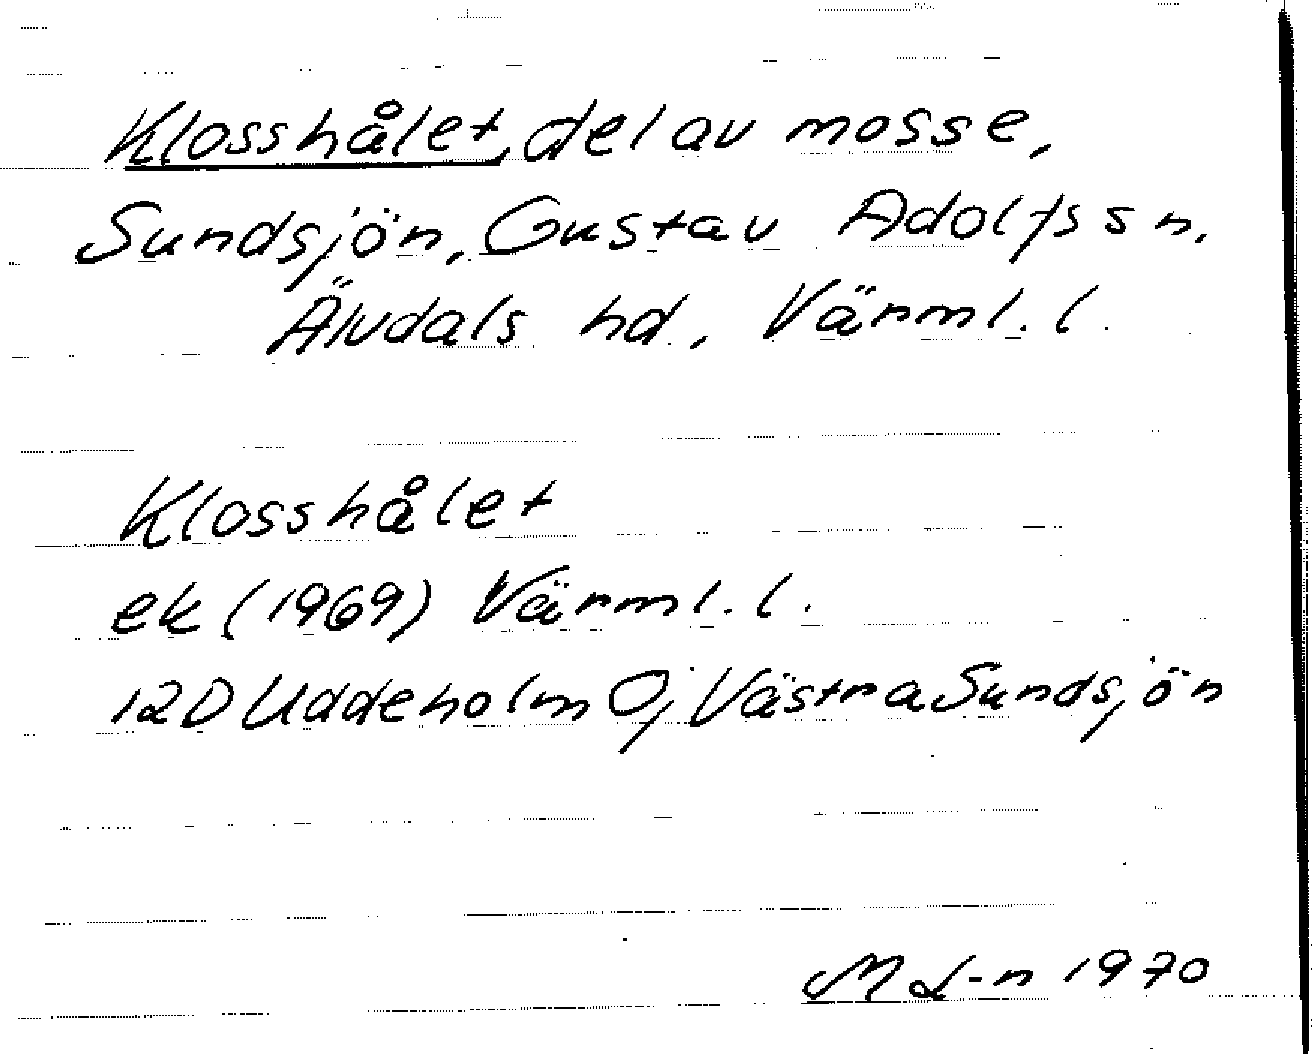 Klosshålet, del av mosse,
Sundsjön, Gustav Adolfs sn,
Älvdals hd, Värml. l.
Klosshålet
ek (1969) Värml. l.
12D Uddeholm 0j Västra Sundsjön
M L-n 1970